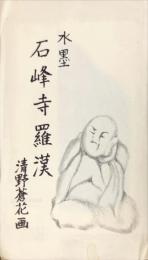 水墨
石峰寺羅漢
清野蒼花画